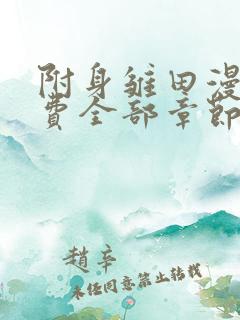 附身雏田漫
费全部章节
赵辛
未经同意禁止转载